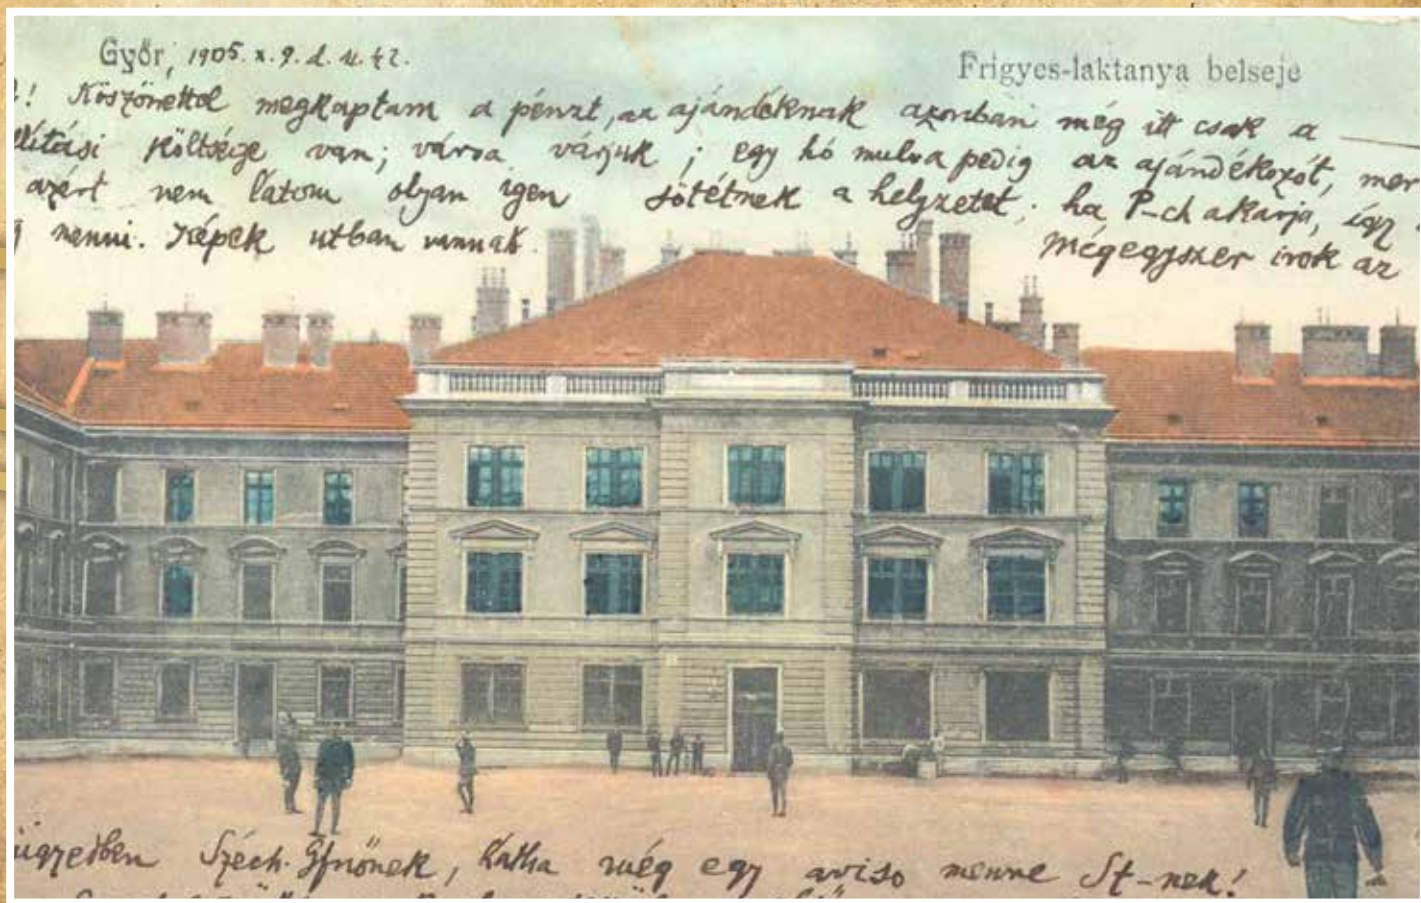 Győr, 1905. X. 9. d. u.
Frigyes-laktanya belseje
! Köszönettel megkaptam a pénzt, az ajándéknak azonban még itt csak a
llitási költsége van; várva várjuk; egy hó mulva pedig az ajándékozót, mer
azért nem látom olyan igen sötétnek a helyzetet; ha P-ch akarja, így
menni. Képek utban vannak.
Mégegyszer irok az
ügyedben Szech. Gfnőnek, hátha még egy aviso menne St-nek!